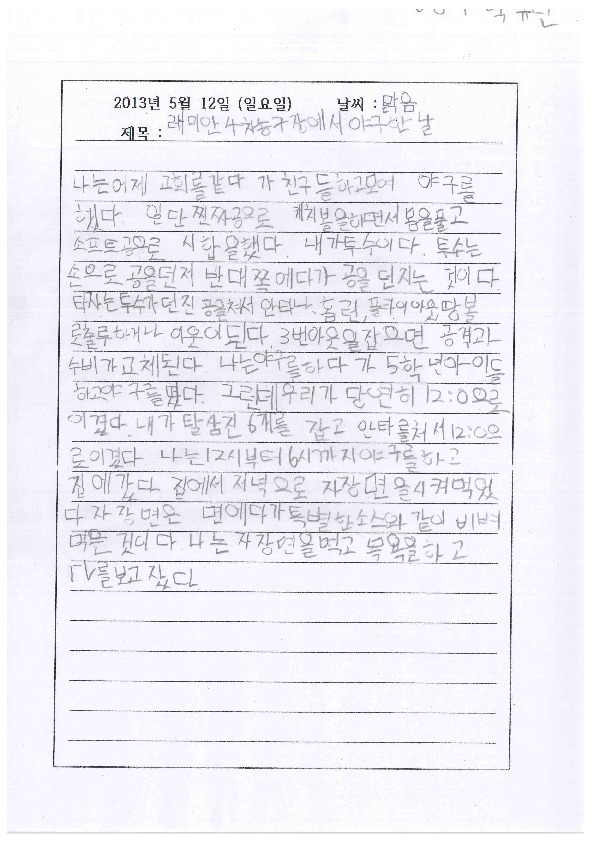 2013년 5월 12일 (일요일) 날씨 : 맑음
제목 : 래미안 4차농구장에서 야구한 날
나는어제 교회를갔다 가 친구들하고모여 야구를
했다 일단 찐짜공으로 캐치볼을하면서 몸을풀고
소프트공으로 시합을했다. 내가투수이다. 투수는
손으로 공을던저 반대쪽에다가 공을 던지는 것이 다
타자는투수가던진 공을쳐서 안타나, 홈런, 플라이아웃,땅볼
로출루하거나 아웃이된다. 3번아웃을잡으면 공격과
수비가교체된다. 나는야구를하다 가 5학년아이들
하고야 구를했다. 그런데우리가 당연히12:0으로
이겼다. 내가 탈삼진 6개를 잡고 안타를쳐서12:0으
로이겼다 나는12시부터6시까지야구를하고
집에갔다. 집에서저녁으로 자장면을시켜먹었
다 자장면은 면에다가특별한소스와 같이 비벼
먹는 것이다. 나는 자장면을먹고 목욕을하고
TV를보고잤다